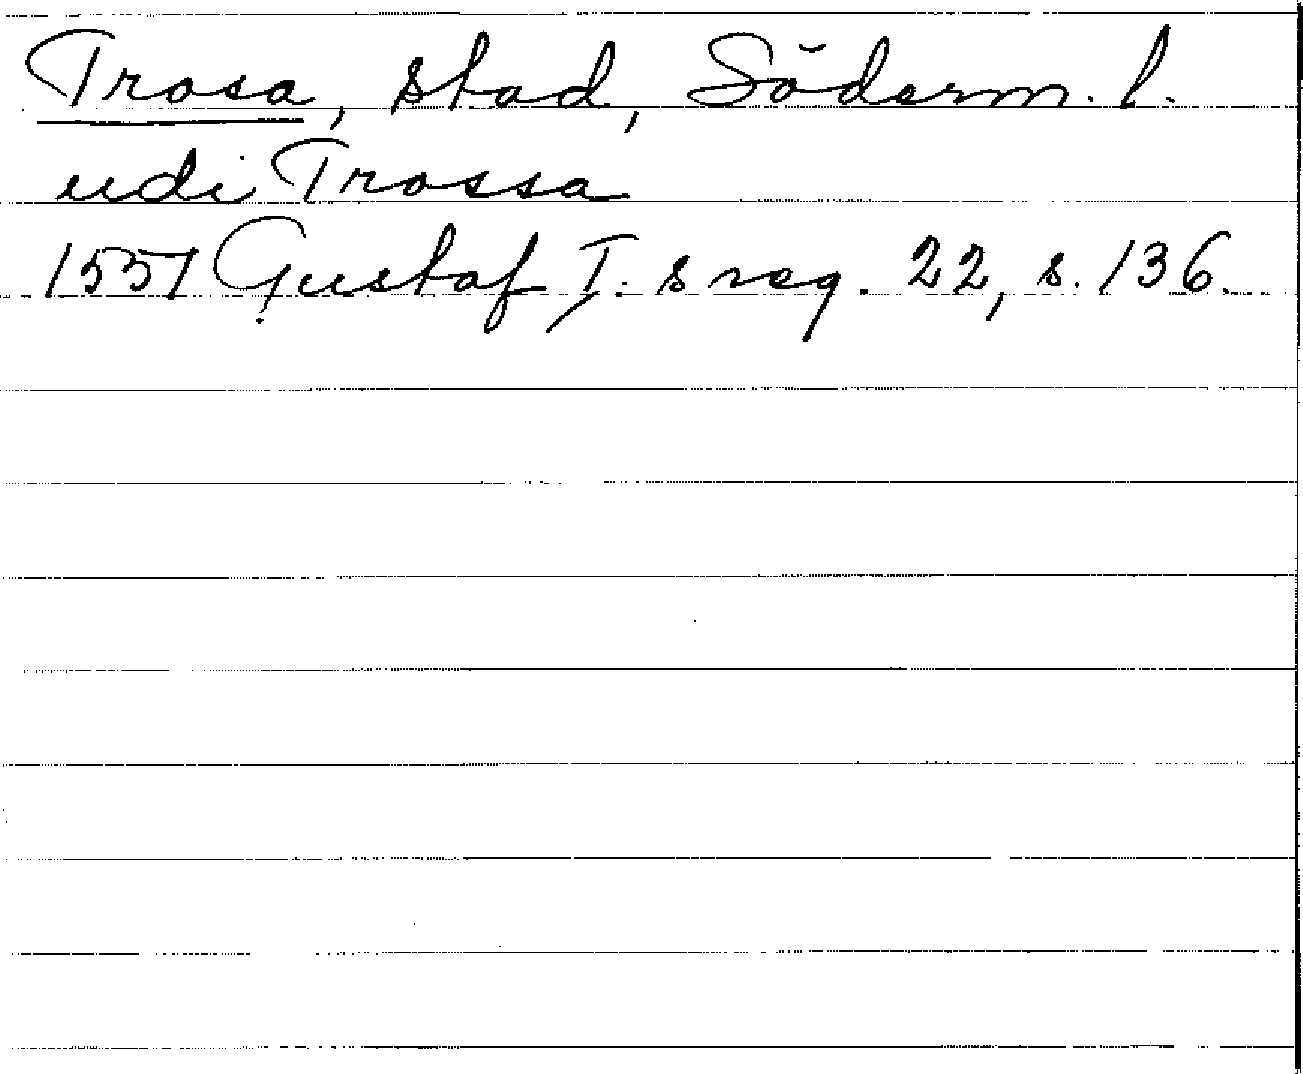 Trosa, stad, Söderm. l.
udi Trossa
1551 Gustaf I:s reg. 22, s. 136.